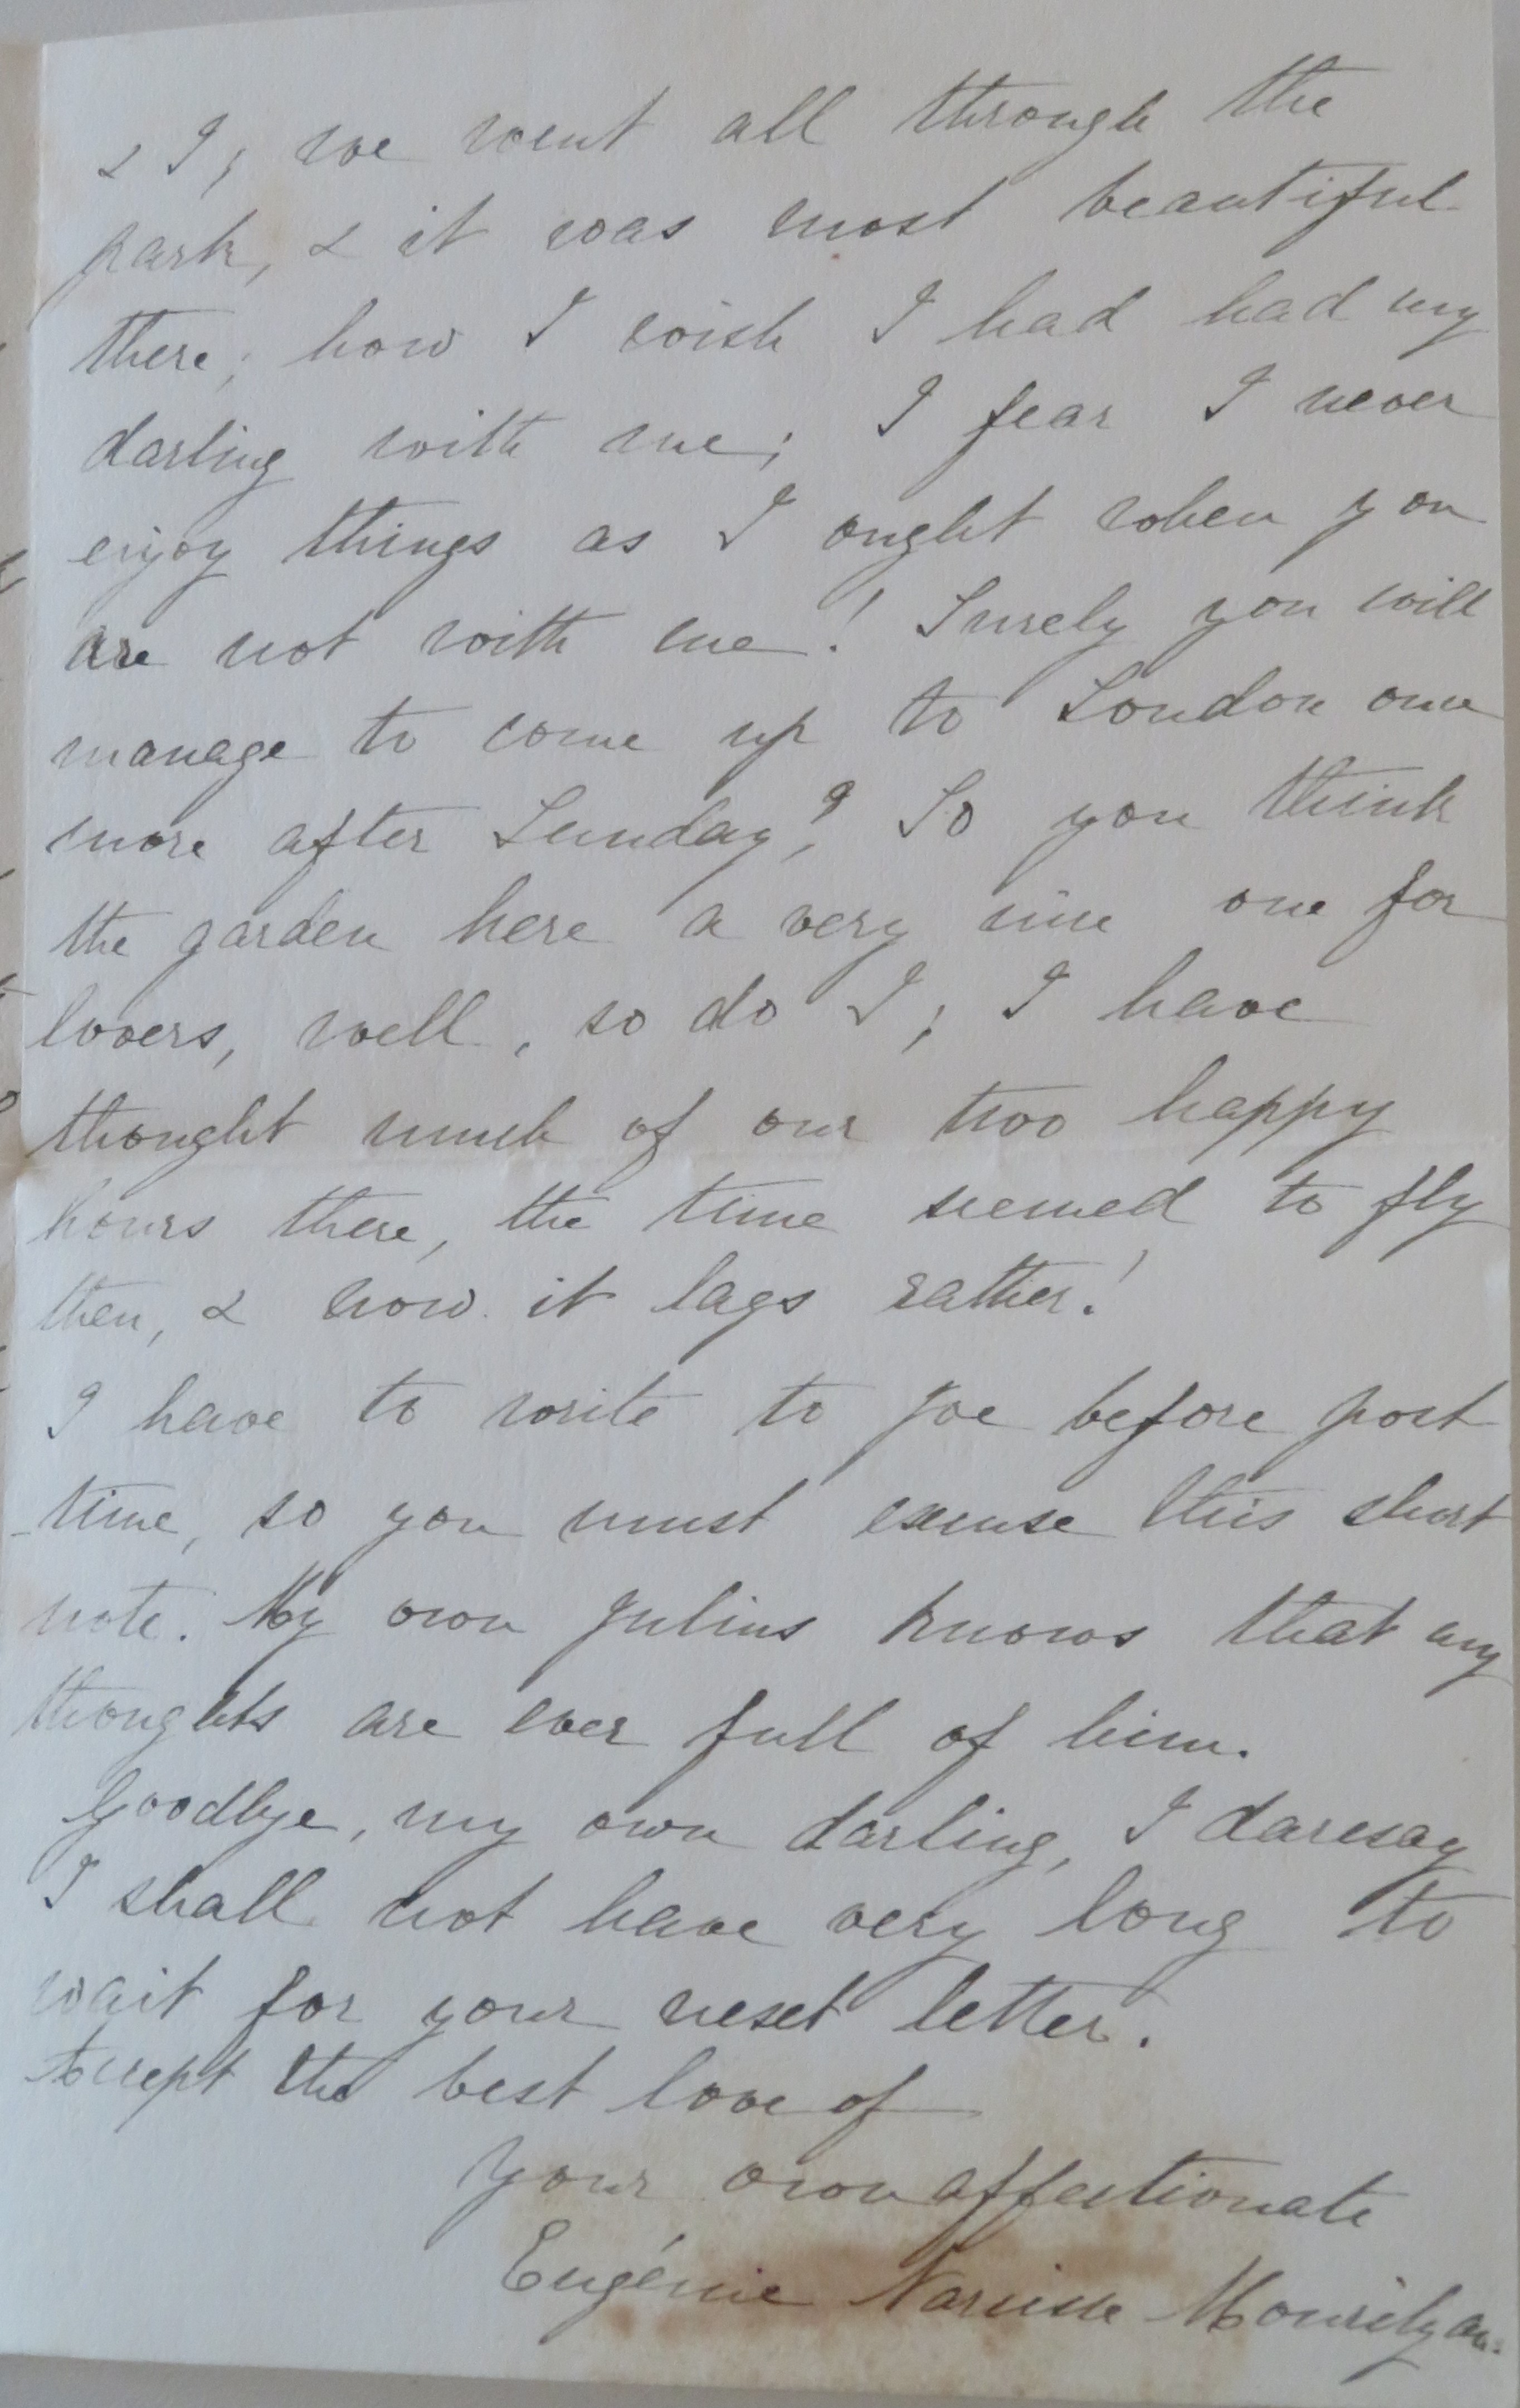 & I, we went all through the
park, & it was most beautiful
there; how I wish I had had my
darling with me; I fear I never
enjoy things as I ought when you
are not with me! Surely you will
manage to come up to London once
more after Sunday? So you think
the garden here a very nice one for
lovers, well, so do I; I have
thought much of our two happy
hours there, the time seemed to fly
then, & now it lags rather!
I have to write to Joe before post
-time, so you must excuse this short
note. My own Julius knows that my
thoughts are ever full of him.
Goodbye, my own darling, I daresay
I shall not have very long to
wait for your next letter.
Accept the best love of
Your own affectionate
Eugénie Narcisse Mourilyan.